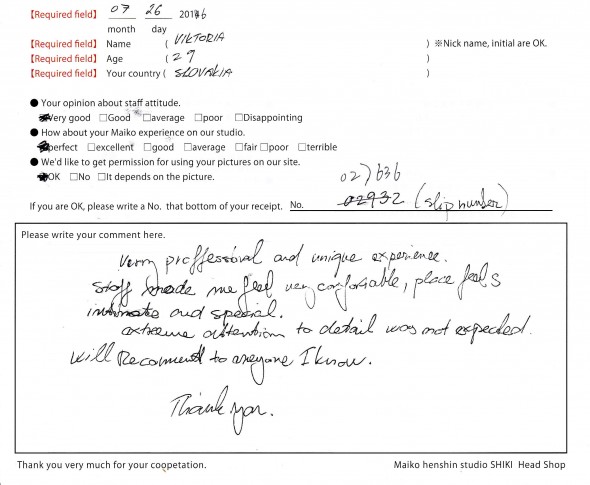 【Required field】 07 26 2016
month day
【Required field】 Name ( VIKTORIA ) ※Nick name, initial are OK.
【Required field】 Age ( 29 )
【Required field】 Your country ( SLOVAKIA )
● Your opinion about staff attitude.
Very good □Good □average □poor □Disappointing
● How about your Maiko experience on our studio.
perfect □excellent □good □average □fair □poor □terrible
● We'd like to get permission for using your pictures on our site.
OK □No □It depends on the picture.
027636
If you are OK, please write a No. that bottom of your receipt. No. 02932 (slip number)
Please write your comment here.
Very proffessional and unique experience.
Staff made me feel very comfortable, place feels
intimate and special.
extreme attention to detail was not expected.
Will Recommend to anyone I know.
Thank you.
Thank you very much for your coopetation. Maiko henshin studio SHIKI Head Shop